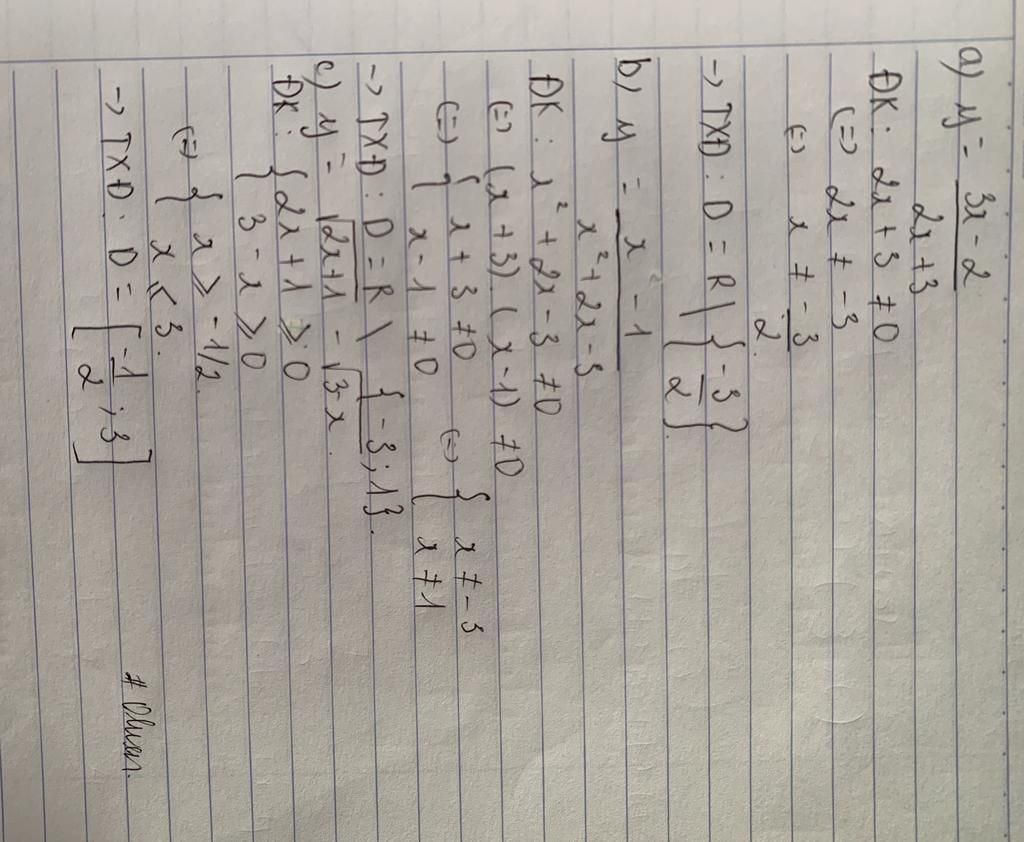 a) y = \frac{3x-2}{2x+3}
ĐK: 2x + 3 ≠ 0
(=) 2x ≠ -3
(=) x ≠ \frac{-3}{2}.
-> TXĐ: D = R \ {\frac{-3}{2}}.
b) y = \frac{x - 1}{x² + 2x - 3}
ĐK: x² + 2x - 3 ≠ 0
(=) (x + 3).(x - 1) ≠ 0
(=) { x + 3 ≠ 0 (=) { x ≠ -3
x - 1 ≠ 0 x ≠ 1
-> TXĐ: D = R \ {-3; 1}.
c) y = √(2x+1) - √(3-x).
ĐK: { 2x + 1 ≥ 0
{ 3 - x ≥ 0
(=) { x ≥ -1/2.
x ≤ 3.
-> TXĐ: D = [\frac{-1}{2}; 3]